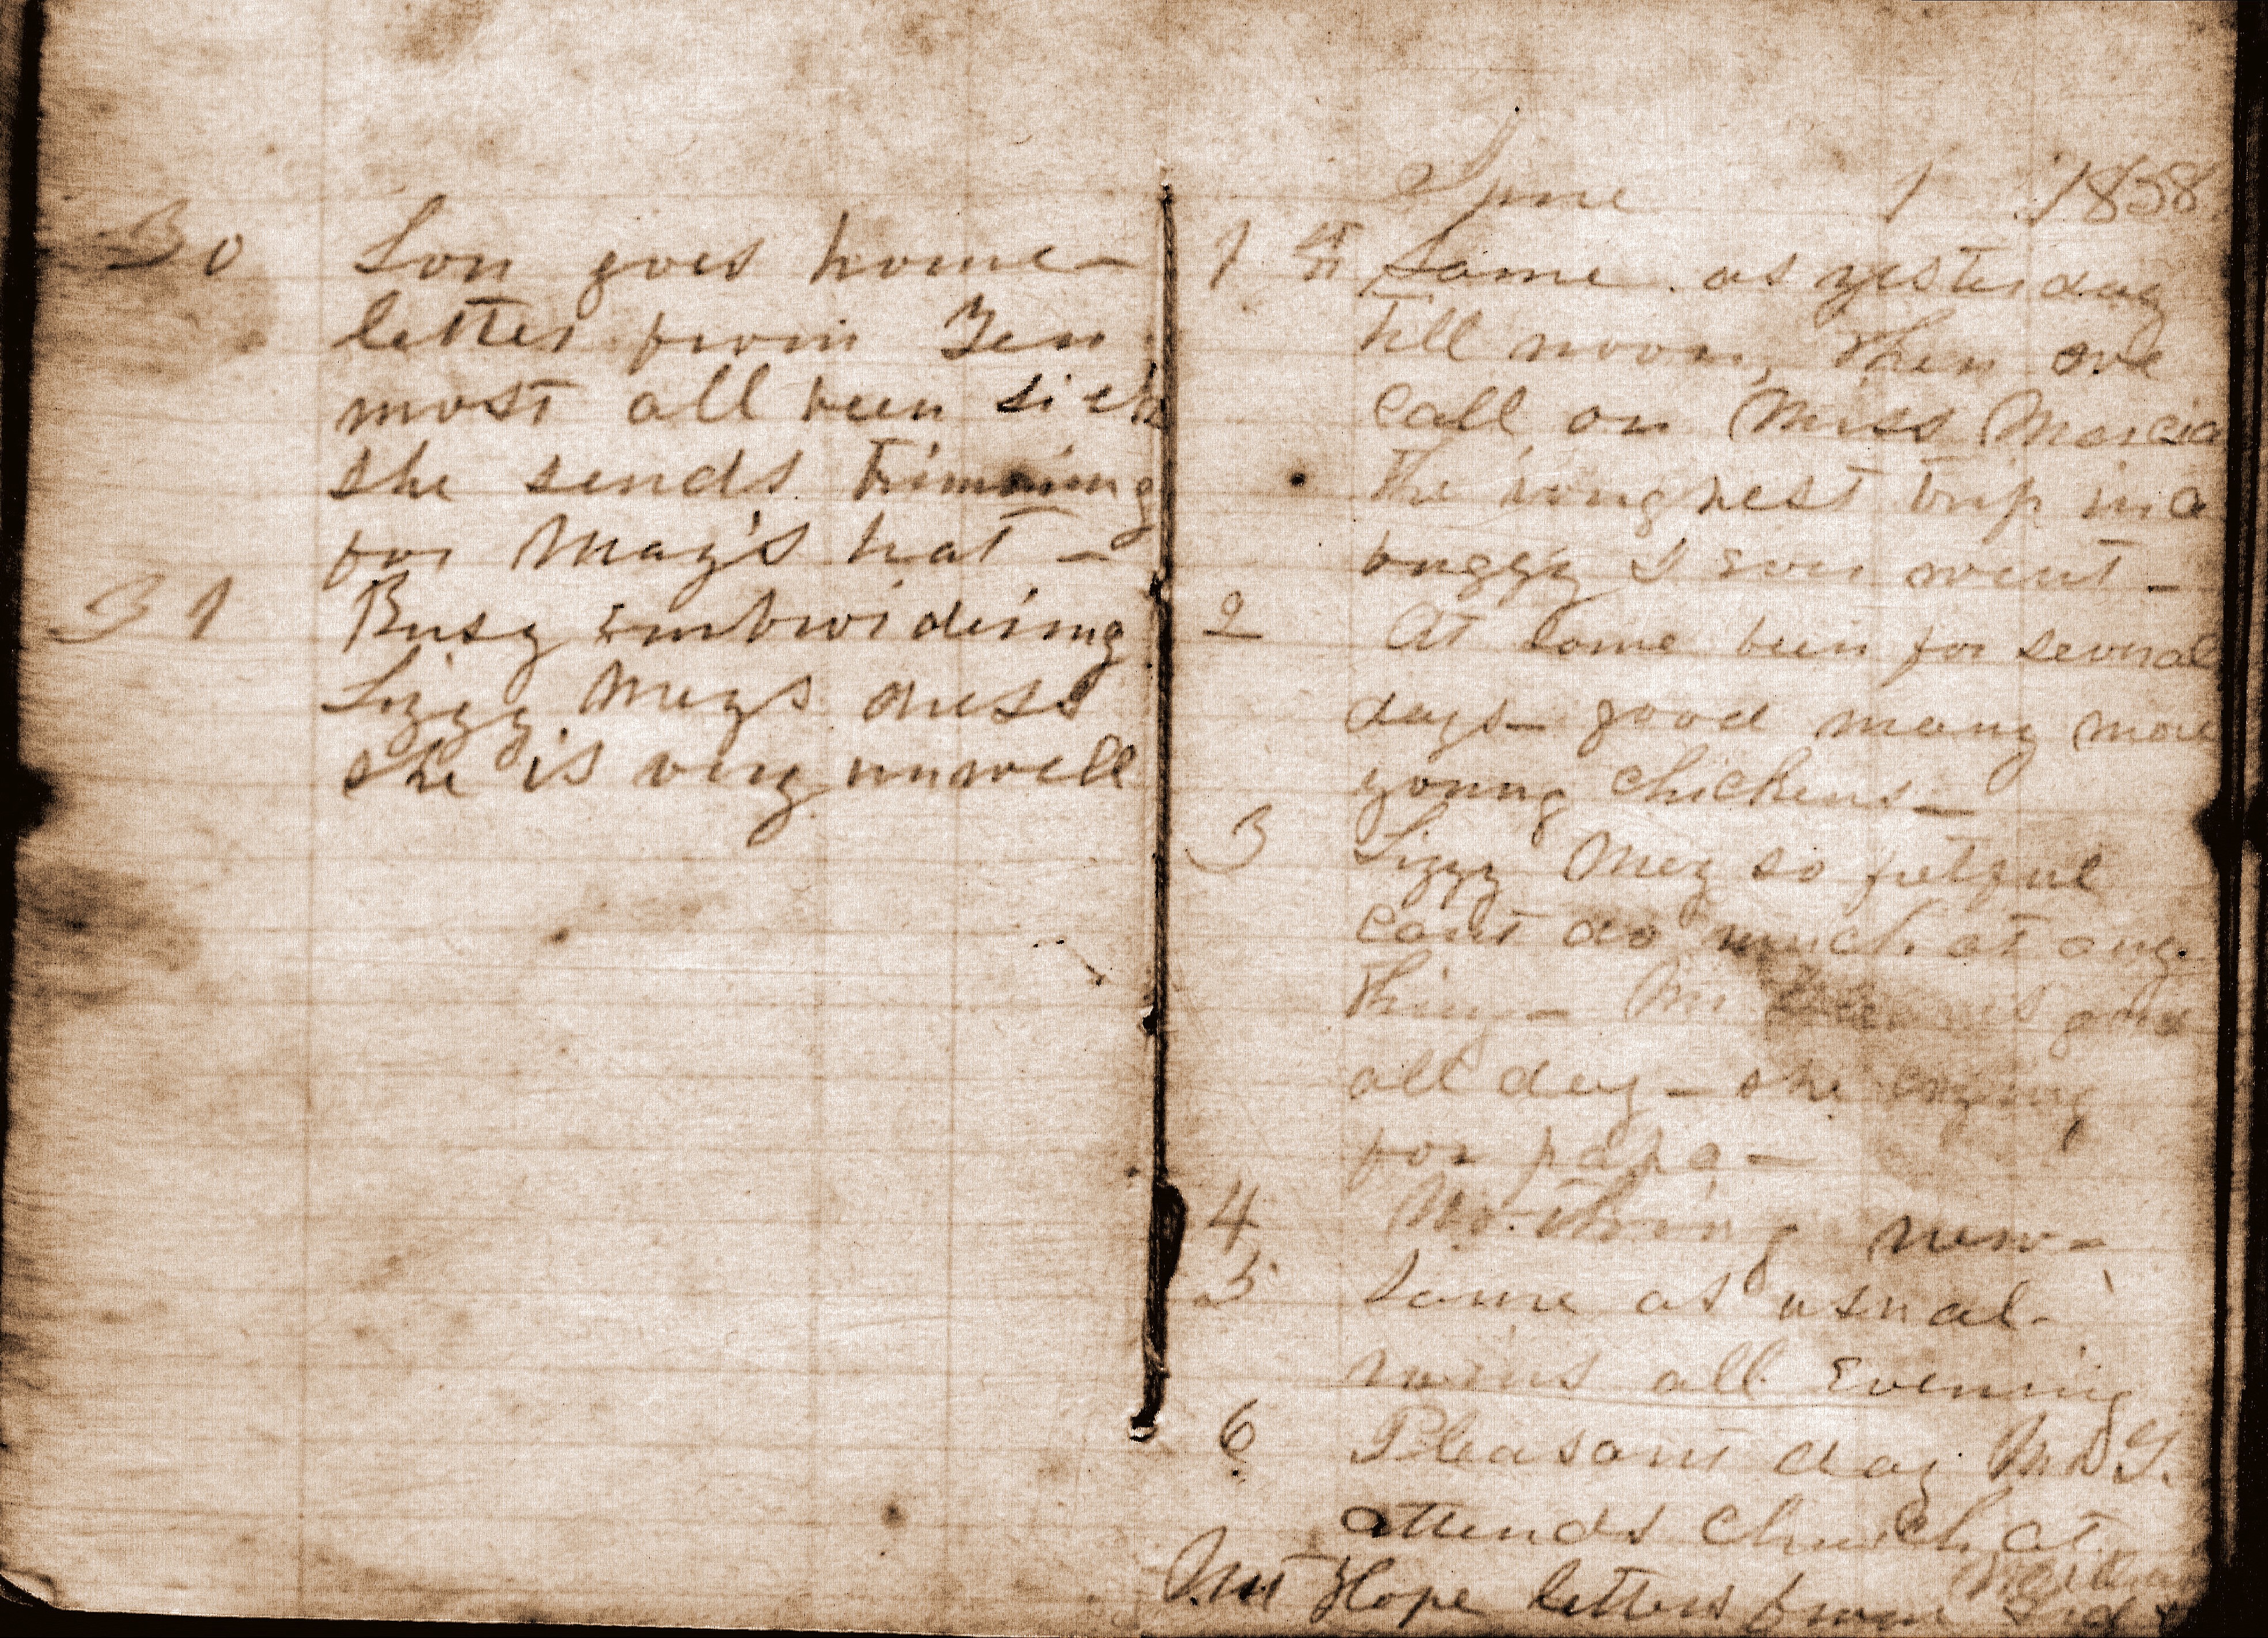 30 Son goes home -
letter from Ten
most all been sick
she sends trimming
for May's hat -
31 Busy Embroidering
Lizzy Mays dress
she is very unwell
June 1 1858
1 st Same as yesterday
till noon, then we
call on Miss Marcia
the roughest trip in a
buggy I Ever went -
2 At home been for several
days - good many more
young chickens -
3 Lizzy May so fretful
cant do much at any
thing - Mr is gone
all day - she crying
for papa -
4 Nothing new -
5 Same as usual -
rains all Evening
6 Pleasant day M D G.
attends church at
Mt Hope letters from